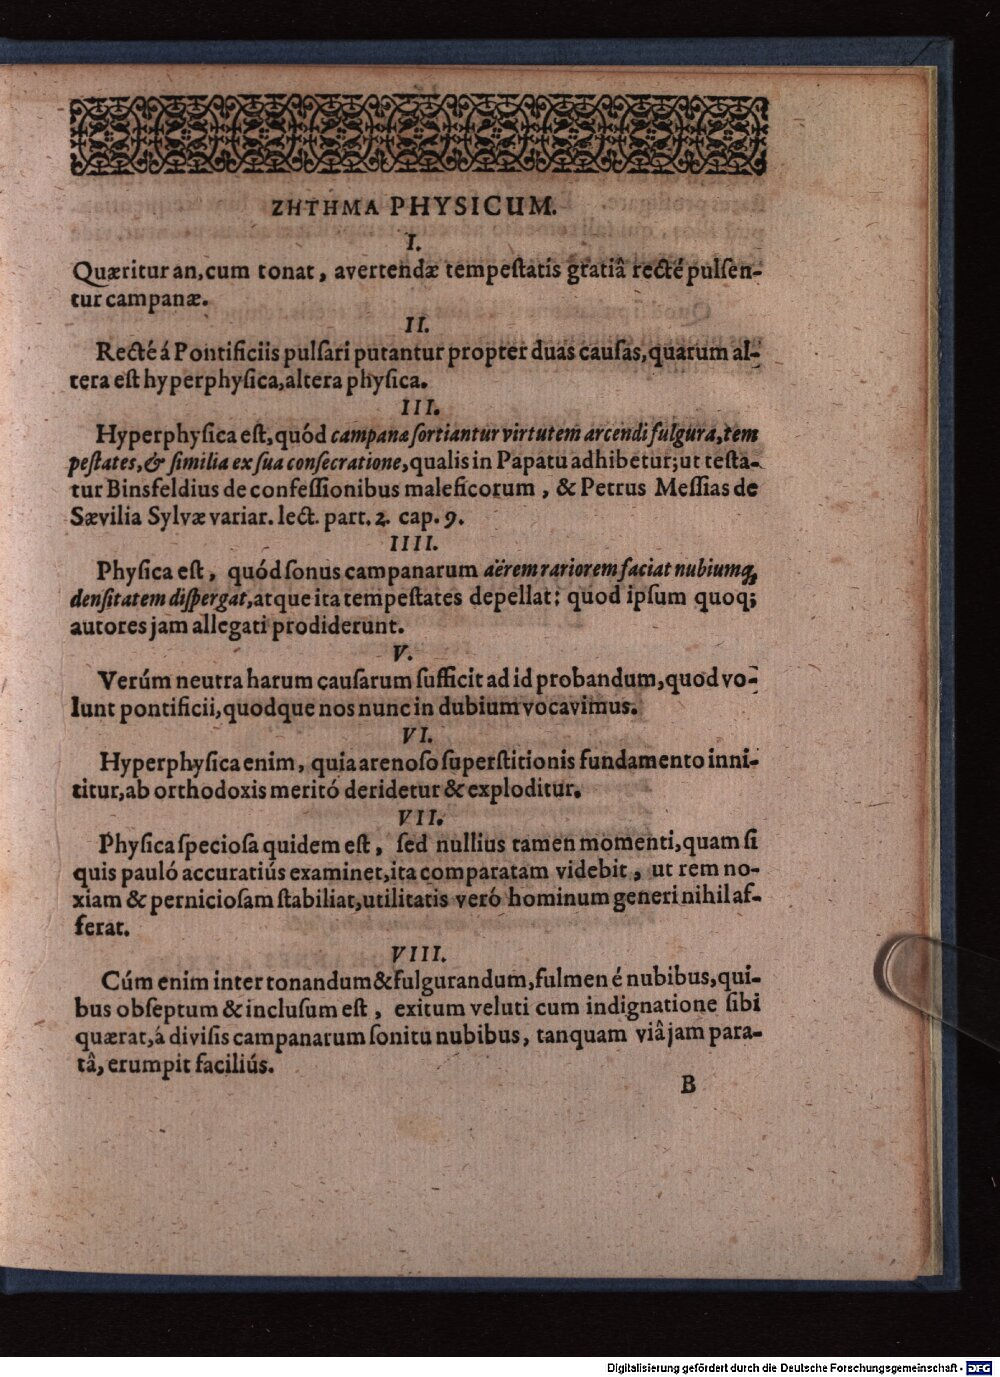 ΖΗΤΗΜΑ PHYSICUM.
I.
Quæritur an, cum tonat, avertendæ tempeſtatis gratiâ recté pulſen-
tur campanæ.
II.
Recté á Pontificiis pulſari putantur propter duas cauſas, quarum al-
tera eſt hyperphyſica, altera phyſica.
III.
Hyperphyſica eſt, quód campanæ ſortiantur virtutem arcendi fulgura, tem
peſtates, & ſimilia ex ſua conſecratione, qualis in Papatu adhibetur; ut teſta-
tur Binsfeldius de confeſſionibus maleficorum, & Petrus Meſſias de
Sævilia Sylvæ variar. lect. part. 2. cap. 9.
IIII.
Phyſica eſt, quód ſonus campanarum aërem rariorem faciat nubiumq;
denſitatem diſpergat, atque ita tempeſtates depellat: quod ipſum quoq;
autores jam allegati prodiderunt.
V.
Verúm neutra harum cauſarum ſufficit ad id probandum, quod vo-
lunt pontificii, quodque nos nunc in dubium vocavimus.
VI.
Hyperphyſica enim, quia arenoſo ſuperſtitionis fundamento inni-
titur, ab orthodoxis meritó deridetur & exploditur.
VII.
Phyſica ſpecioſa quidem eſt, ſed nullius tamen momenti, quam ſi
quis pauló accuratiús examinet, ita comparatam videbit, ut rem no-
xiam & pernicioſam ſtabiliat, utilitatis veró hominum generi nihil af-
ferat.
VIII.
Cúm enim inter tonandum & fulgurandum, fulmen é nubibus, qui-
bus obſeptum & incluſum eſt, exitum veluti cum indignatione ſibi
quærat, á diviſis campanarum ſonitu nubibus, tanquam viâ jam para-
tâ, erumpit faciliús.
B
Digitalisierung gefördert durch die Deutsche Forschungsgemeinschaft - DFG